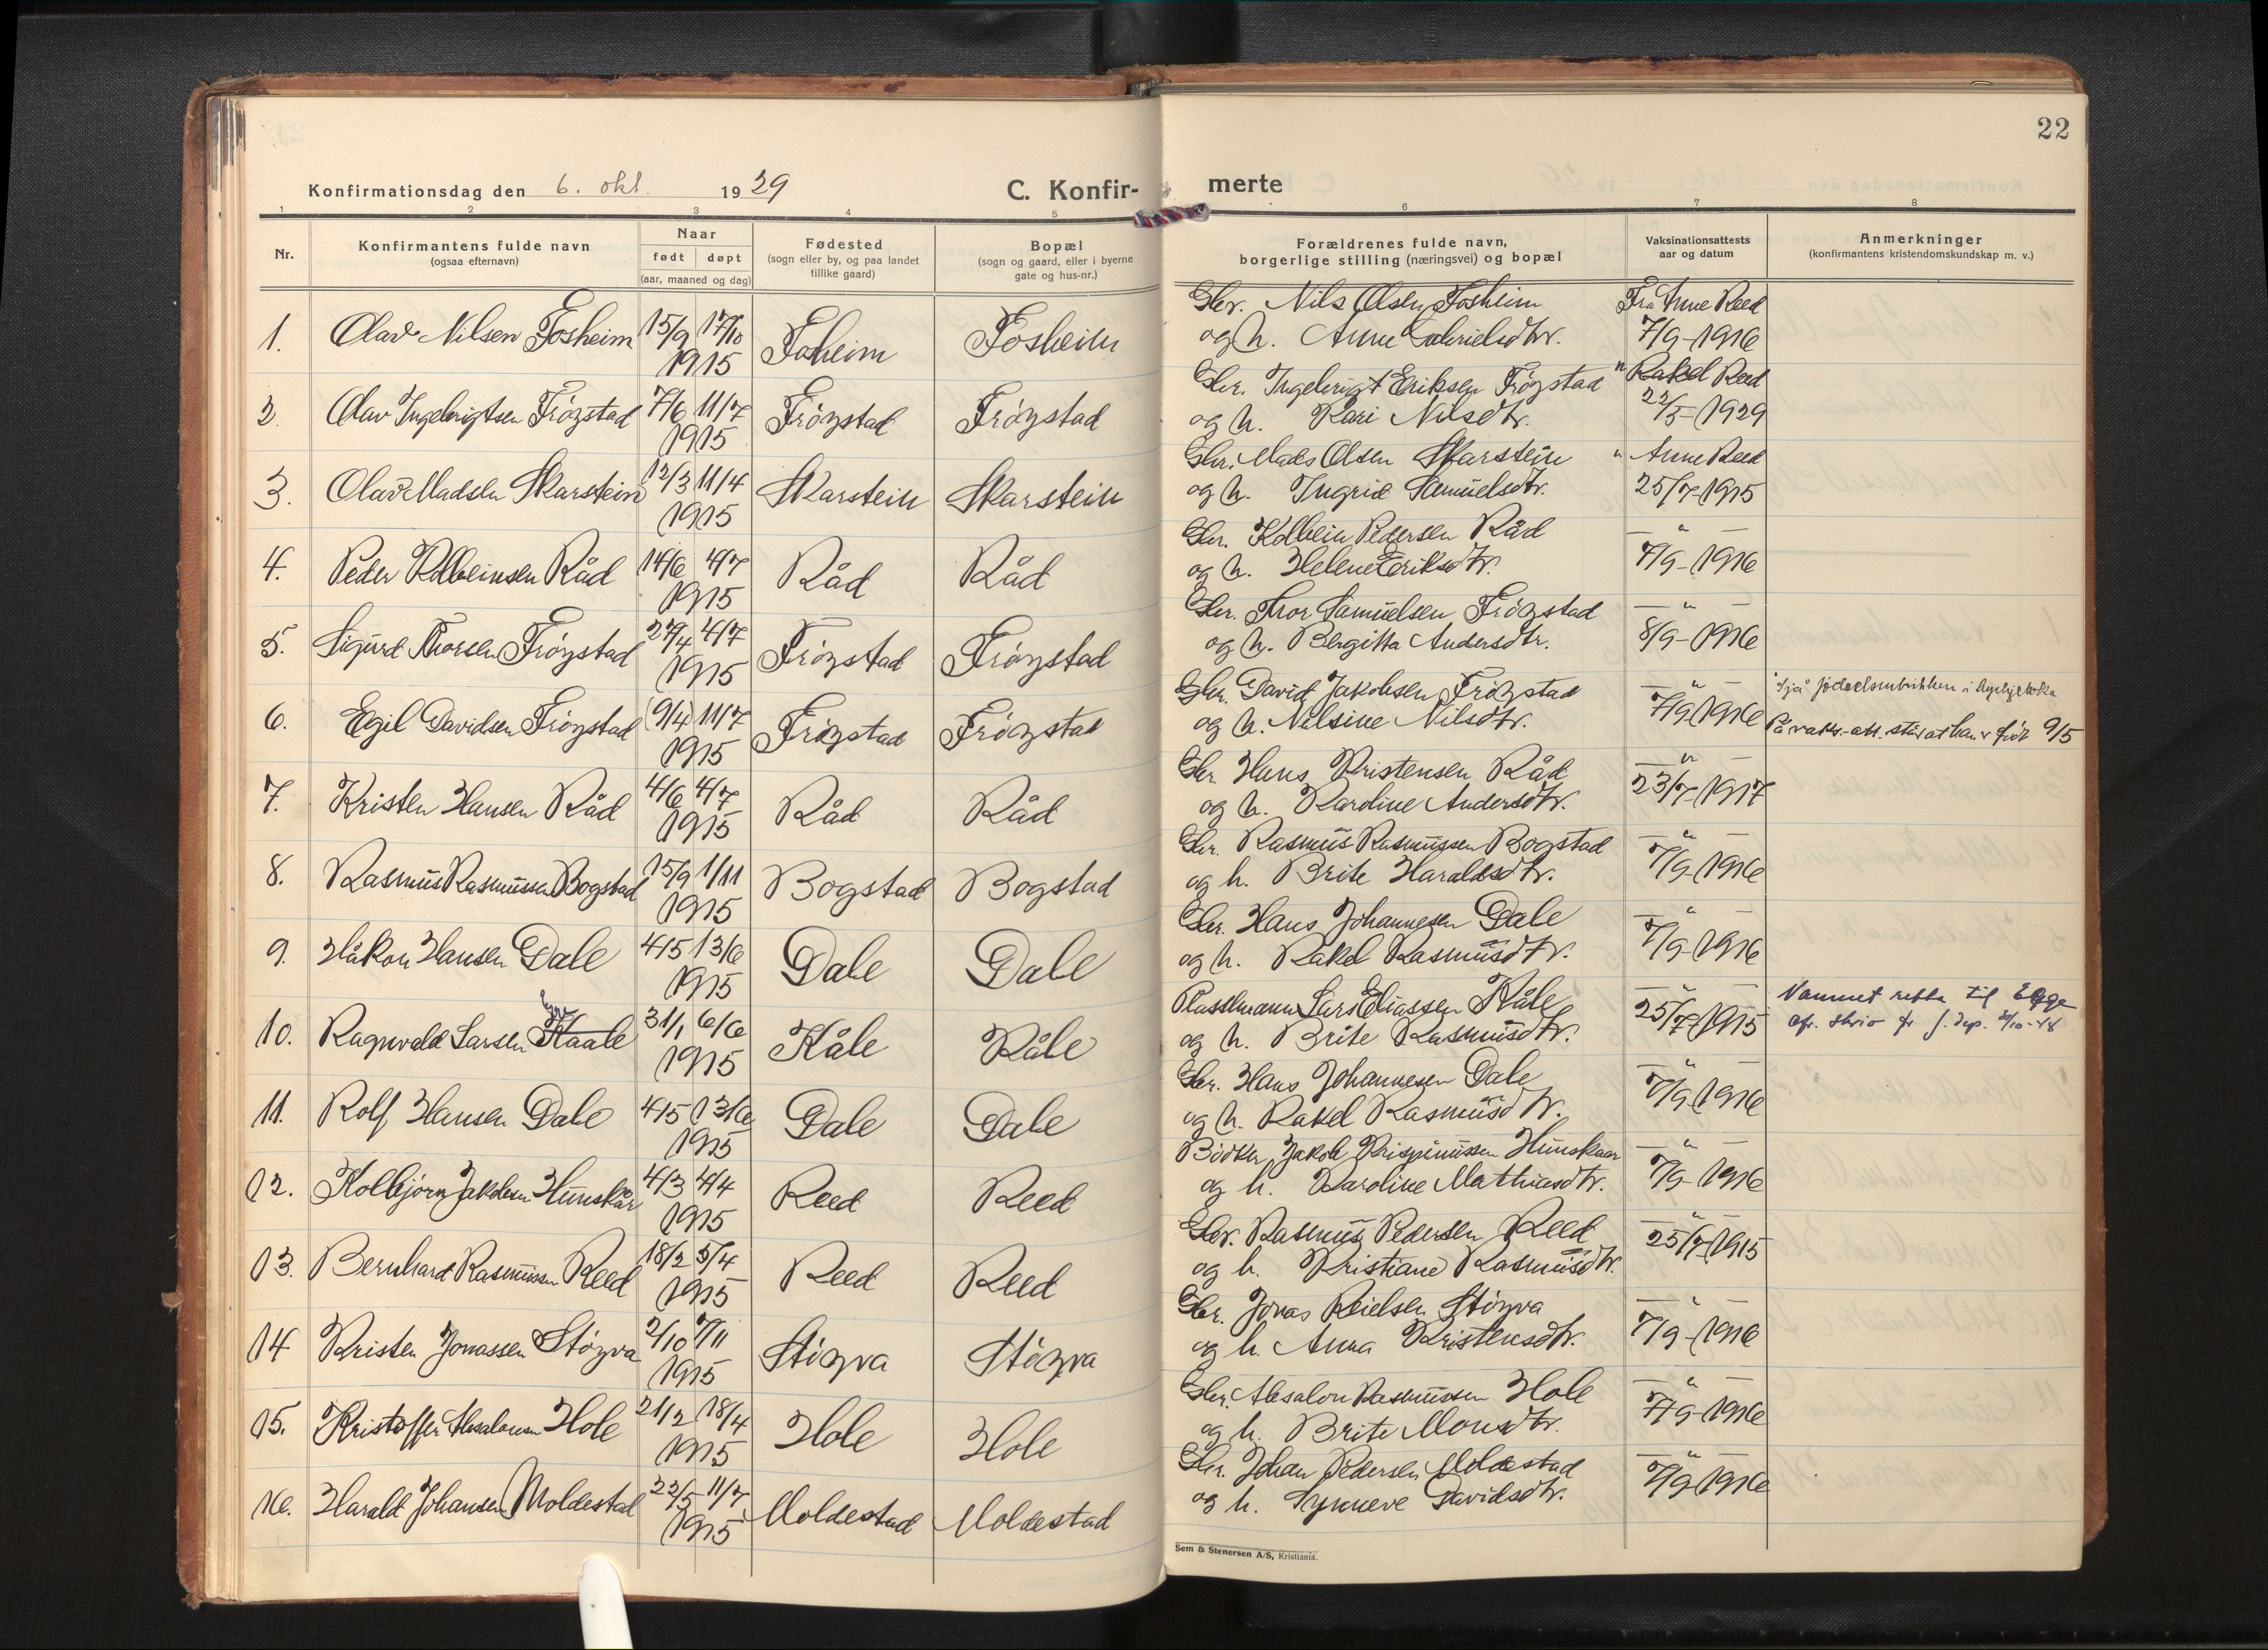 22
Konfirmationsdag den 6. okt. 1929
C. Konfir-
merte
1 2 3 4 5 6 7 8
Nr.
Konfirmantens fulde navn
(ogsaa efternavn)
Naar
født døpt
(aar, maaned og dag)
Fødested
(sogn eller by, og paa landet
tillike gaard)
Bopæl
(sogn og gaard, eller i byerne
gate og hus-nr.)
Forældrenes fulde navn,
borgerlige stilling (næringsvei) og bopæl
Vaksinationsattests
aar og datum
Anmerkninger
(konfirmantens kristendomskundskap m. v.)
Gbr. Nils Olsen Fosheim Fra Anne Reed
1. Olav Nilsen Fosheim 15/9 17/10 Foheim Fosheim og h. Anne Gabrielsdtr. 7/9-1916
1915
Gbr. Ingebrigt Eriksen Fröystad " Rakel Reed
2. Olav Ingebrigtsen Fröystad 7/6 11/7 Fröystad Fröystad og h. Kari Nilsdtr. 22/5-1929
1915
Gbr. Mads Olsen Skarstein " Anne Reed
3. Olav Madsen Skarstein 12/3 11/4 Skarstein Skarstein og h. Ingrid Samuelsdtr. 25/7-1915
1915
Gbr. Kolbein Pedersen Råd — " —
4. Peder Kolbeinsen Råd 14/6 4/7 Råd Råd og h. Helene Eriksdtr. 7/9-1916
1915
Gbr. Tror Samuelsen Fröystad — " —
5. Sigurd Thorsen Fröystad 27/4 4/7 Fröystad Fröystad og h. Bergitta Andersdtr. 8/9-1916
1915
Gbr. David Jakobsen Fröystad — " —
6. Egil Davidsen Fröystad (9/4) 11/7 Fröystad Fröystad og h. Nilsine Nilsdtr. 7/9-1916 På vaks.-att. står at han er född 9/5
1915
Gbr. Hans Kristensen Råd — " —
7. Kristen Hansen Råd 4/6 4/7 Råd Råd og h. Karoline Andersdtr. 23/7-1917
1915
Gbr. Rasmus Rasmussen Bogstad — " —
8. Rasmus Rasmussen Bogstad 15/9 1/11 Bogstad Bogstad og h. Brite Haraldsdtr. 7/9-1916
1915
Gbr. Hans Johannesen Dale — " —
9. Håkon Hansen Dale 4/5 13/6 Dale Dale og h. Rakel Rasmusdtr. 7/9-1916
1915
Plassmann Lars Eliassen Kåle — " — Namnet retta til Egge
10. Ragnvald Larsen Kaale 31/1 6/6 Kåle Kåle og h. Brite Rasmusdtr. 25/7-1915
1915
Gbr. Hans Johannesen Dale — " —
11. Rolf Hansen Dale 4/5 13/6 Dale Dale og h. Rakel Rasmusdtr. 7/9-1916
1915
Bödker Jakob Krispinussen Hunskaar — " —
12. Kolbjörn Jakobsen Hunskår 4/3 4/4 Reed Reed og h. Karoline Mathiasdtr. 7/9-1916
1915
Gbr. Rasmus Pedersen Reed — " —
13. Bernhard Rasmussen Reed 18/2 5/4 Reed Reed og h. Kristiane Rasmusdtr. 25/7-1915
1915
Gbr. Jonas Reielsen Stöyva — " —
14. Kristen Jonassen Stöyva 2/10 7/11 Stöyva Stöyva og h. Anna Kristensdtr. 7/9-1916
1915
Gbr. Absalon Rasmussen Hole — " —
15. Kristoffer Absalonsen Hole 21/2 18/4 Hole Hole og h. Brite Monsdtr. 7/9-1916
1915
Gbr. Johan Pedersen Moldestad — " —
16. Harald Johansen Moldestad 22/5 11/7 Moldestad Moldestad og h. Synneve Davidsdtr. 7/9-1916
1915
Sem & Stenersen A/S, Kristiania.